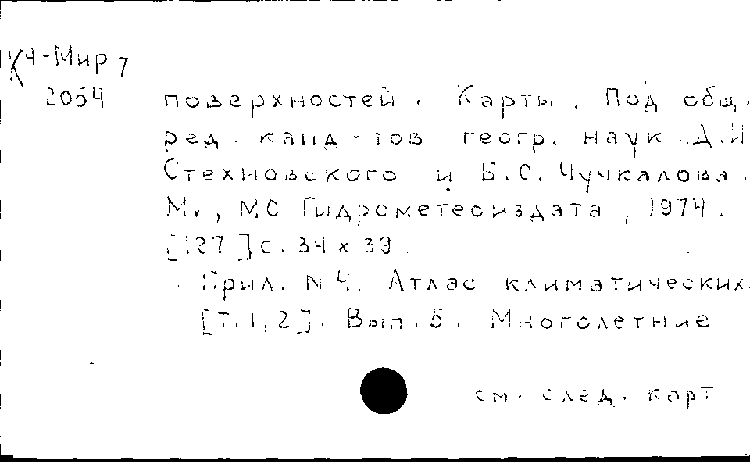 К4-Мир 7
2054
поверхностей. Карты. Под общ.
ред. канд-тов геогр. наук Д.И.
Стехновского и Б.С. Чучкалова.
М., МО Гидрометеоиздата, 1974.
[127] с. 34 х 39.
Прил. N 4. Атлас климатических
[т. 1, 2]. Вып. 5. Многолетние
см. след. карт